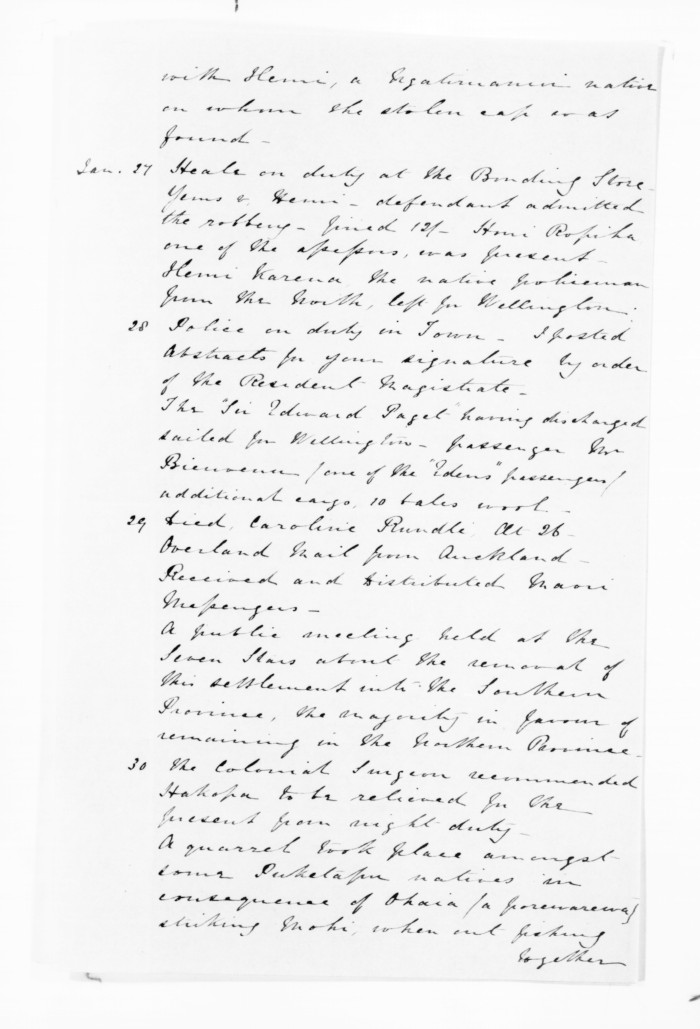 with Hemi, a Ngatimaniri native
on whom the stolen cap was
found -
Jan. 27 Heale on duty at the Bonding Store -
Yems v. Hemi - defendant admitted
the robbery - fined 12/- Honi Ropiha
one of the assessors, was present -
Hemi Karena the native policeman
from the North, left for Wellington.
28 Police on duty in Town - I posted
Abstracts for your signature by order
of the Resident Magistrate -
The "Sir Edward Paget" having discharged
sailed for Wellington - passenger Mr
Bienvenu (one of the "Edens" passengers)
additional cargo, 10 bales wool -
29 Died, Caroline Rundle, Æt 26 -
Overland Mail from Auckland -
Received and distributed Maori
Messengers -
A public meeting held at the
Seven Stars about the removal of
this settlement into the Southern
Province, the majority in favour of
remaining in the Northern Province -
30 The Colonial Surgeon recommended
Hakopa to be relieved for the
present from night duty -
A quarrel took place amongst
some Puketapu natives in
consequence of Okaia (a porewarewa)
striking Mohi, when out fishing
together